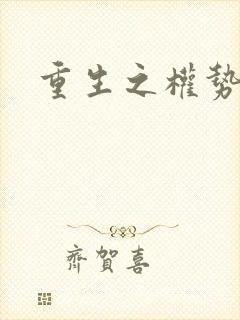 重生之權勢
齊賀喜